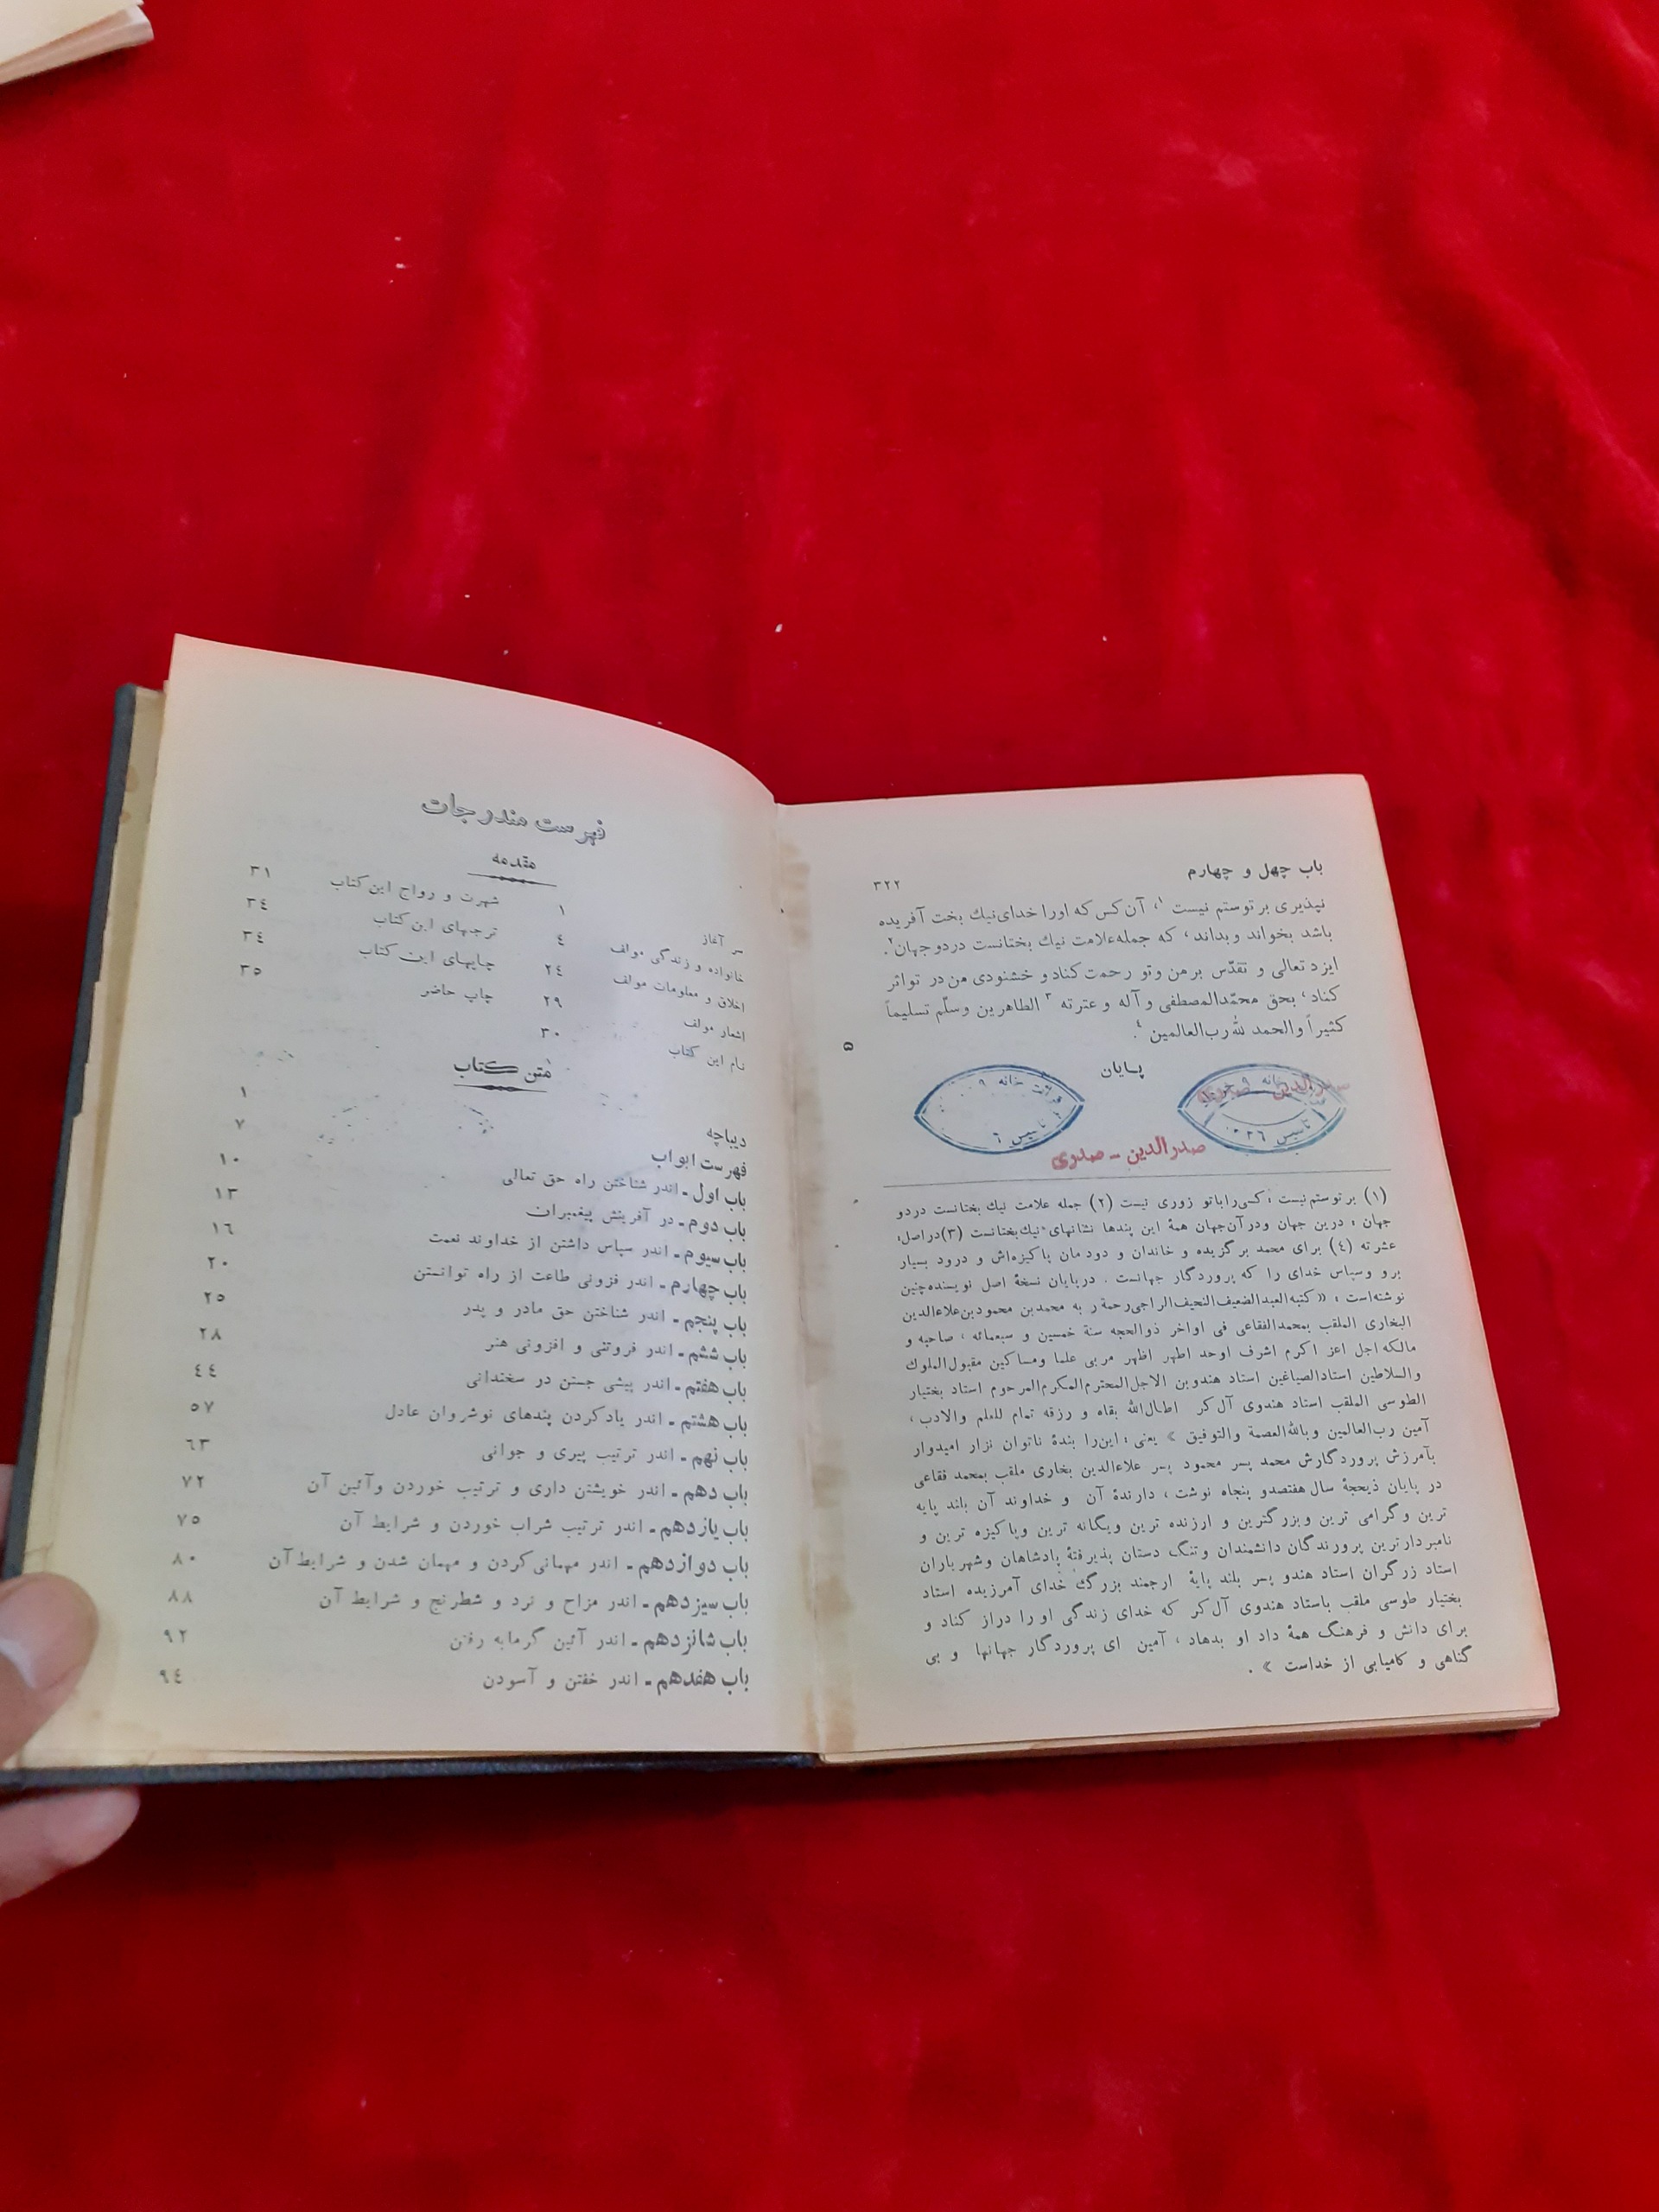 باب چهل و چهارم
٣٢٢
نپذیری بر توستم نیست ١، آن کس که اورا خدای نیك بخت آفریده
باشد بخواند و بداند، که جمله علامت نیك بختانست در دو جهان ٢.
ایزد تعالی و تقدّس بر من و تو رحمت کناد و خشنودی من در تو اثر
کناد، بحق محمّد المصطفی و آله و عترته ٣ الطاهرین و سلّم تسلیماً
کثیراً والحمد لله رب العالمین ٤.
٥
پایان
تاسیس
تاسیس ١٣٣٦
صدرالدین - صدری
(١) بر توستم نیست : کسی را با تو زوری نیست (٢) جمله علامت نیك بختانست در دو
جهان : درین جهان و در آن جهان همۀ این پندها نشانهای نیك بختانست (٣) در اصل:
عشرته (٤) برای محمد برگزیده و خاندان و دودمان پاکیزه‌اش و درود بسیار
برو و سپاس خدای را که پروردگار جهانست . در پایان نسخۀ اصل نویسنده چنین
نوشته است : «کتبه العبد الضعیف النحیف الراجی رحمة ر به محمد بن محمود بن علاءالدین
البخاری الملقب بمحمد الفقاعی فی اواخر ذوالحجه سنة خمسین و سبعمائه ، صاحبه و
مالکه اجل اعز اکرم اشرف اوحد اطهر اظهر مربی علما و مساکین مقبول الملوك
والسلاطین استاد الصیاغین استاد هندو بن الاجل المحترم المکرم المرحوم استاد بختیار
الطوسی الملقب استاد هندوی آل کر اطال الله بقاه و رزقه تمام للعلم والادب ،
آمین رب العالمین وبالله العصمة والتوفیق » یعنی : این را بندۀ ناتوان نزار امیدوار
بآمرزش پروردگارش محمد پسر محمود پسر علاءالدین بخاری ملقب بمحمد فقاعی
در پایان ذیحجۀ سال هفتصد و پنجاه نوشت ، دارندۀ آن و خداوند آن بلند پایه
ترین و گرامی ترین و بزرگترین و ارزنده ترین و یگانه ترین و پاکیزه ترین و
نامبردارترین پرورندگان دانشمندان و تنگ دستان پذیرفتۀ پادشاهان و شهریاران
استاد زرگران استاد هندو پسر بلند پایۀ ارجمند بزرگ خدای آمرزیده استاد
بختیار طوسی ملقب باستاد هندوی آل کر که خدای زندگی او را دراز کناد و
برای دانش و فرهنگ همۀ داد او بدهاد ، آمین ای پروردگار جهانها و بی
گناهی و کامیابی از خداست » .
فهرست مندرجات
مقدمه
سر آغاز ١
خانواده و زندگی مولف ٤
اخلاق و معلومات مولف ٢٤
اشعار مولف ٢٩
نام این کتاب ٣٠
شهرت و رواج این کتاب ٣١
ترجمهای این کتاب ٣٤
چاپهای این کتاب ٣٤
چاپ حاضر ٣٥
متن کتاب
دیباچه ١
فهرست ابواب ٧
باب اول - اندر شناختن راه حق تعالی ١٠
باب دوم - در آفرینش پیغمبران ١٣
باب سیوم - اندر سپاس داشتن از خداوند نعمت ١٦
باب چهارم - اندر فزونی طاعت از راه توانستن ٢٠
باب پنجم - اندر شناختن حق مادر و پدر ٢٥
باب ششم - اندر فروتنی و افزونی هنر ٢٨
باب هفتم - اندر پیشی جستن در سخندانی ٤٤
باب هشتم - اندر یاد کردن پندهای نوشروان عادل ٥٧
باب نهم - اندر ترتیب پیری و جوانی ٦٣
باب دهم - اندر خویشتن داری و ترتیب خوردن و آئین آن ٧٢
باب یازدهم - اندر ترتیب شراب خوردن و شرایط آن ٧٥
باب دوازدهم - اندر مهمانی کردن و مهمان شدن و شرایط آن ٨٠
باب سیزدهم - اندر مزاح و نرد و شطرنج و شرایط آن ٨٨
باب شانزدهم - اندر آئین گرمابه رفتن ٩٢
باب هفدهم - اندر خفتن و آسودن ٩٤